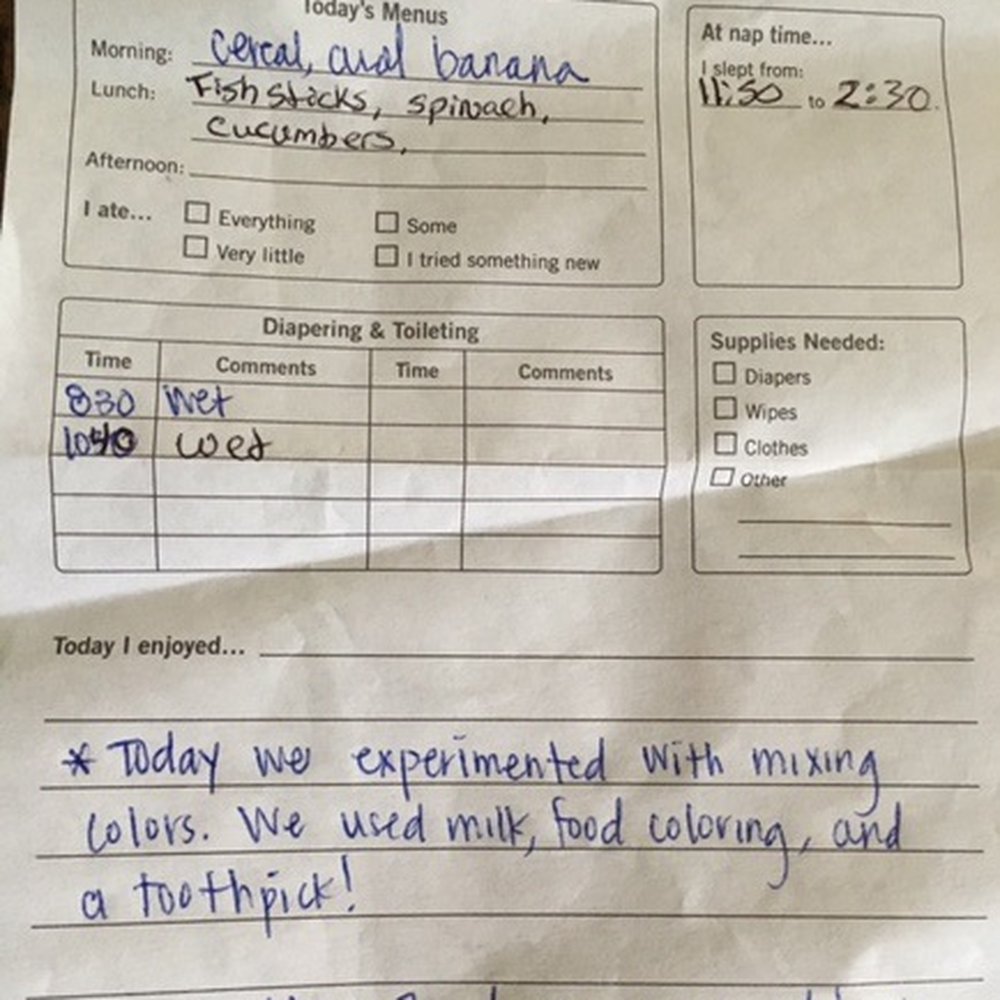 Today's Menus
Morning: cereal, and banana
Lunch: Fish sticks, spinach,
cucumbers,
Afternoon:
I ate... Everything Some
Very little I tried something new
At nap time...
I slept from:
11:50 to 2:30.
Diapering & Toileting
Time Comments Time Comments
830 wet
1040 wet
Supplies Needed:
Diapers
Wipes
Clothes
Other
Today I enjoyed...
* Today we experimented with mixing
colors. We used milk, food coloring, and
a toothpick!